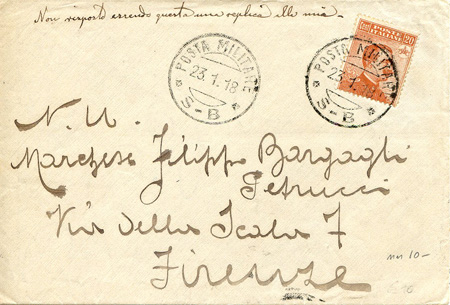 Non risposto essendo questa una replica alla mia.
POSTA MILITARE
23.1.18
S-B
POSTE ITALIANE
20
POSTA MILITARE
23.1.18
S-B
N. U.
Marchese Filippo Bargagli
Petrucci
Via della Scala 7
Firenze
10-